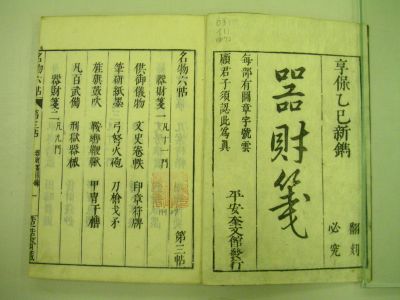 享保乙巳新鐫
器財箋
翻刻
必究
平安奎文館發行
每部有圖章字號雲
願君子須認此爲真
名物六帖
第三帖
器財箋一
凡十一門
供御儀物
文史卷帙
印章符牌
筆研紙墨
弓弩火砲
刀槍戈矛
旌旗鼓吹
鞍轡
甲冑干櫓
凡百武備
刑獄器械
器財箋二
凡九門
名物六帖